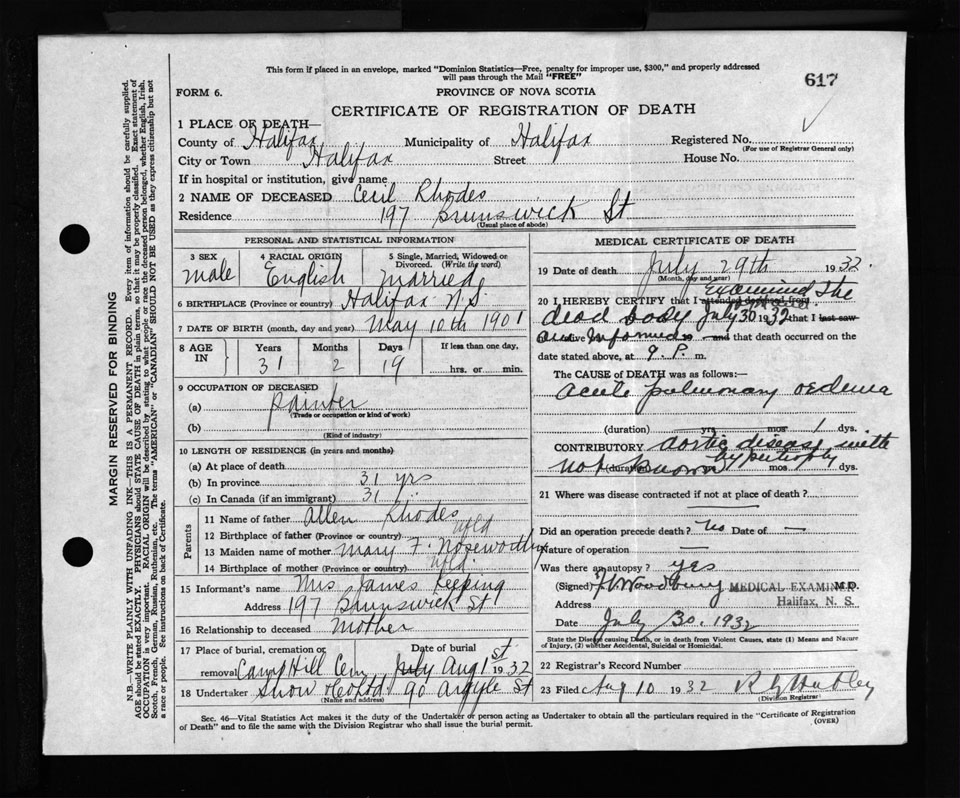 This form if placed in an envelope, marked "Dominion Statistics—Free, penalty for improper use, $300," and properly addressed
will pass through the Mail "FREE"
617
FORM 6.
PROVINCE OF NOVA SCOTIA
CERTIFICATE OF REGISTRATION OF DEATH
1 PLACE OF DEATH—
County of Halifax Municipality of Halifax Registered No.
(For use of Registrar General only)
City or Town Halifax Street House No.
If in hospital or institution, give name
2 NAME OF DECEASED Cecil Rhodes
Residence 197 Brunswick St
(Usual place of abode)
PERSONAL AND STATISTICAL INFORMATION
3 SEX 4 RACIAL ORIGIN 5 Single, Married, Widowed or
Divorced. (Write the word)
male English married
6 BIRTHPLACE (Province or country) Halifax N.S.
7 DATE OF BIRTH (month, day and year) May 10th 1901
8 AGE IN Years Months Days If less than one day,
31 2 19 hrs. or min.
9 OCCUPATION OF DECEASED
(a) Painter
(Trade or occupation or kind of work)
(b)
(Kind of industry)
10 LENGTH OF RESIDENCE (in years and months)
(a) At place of death
(b) In province 31 yrs
(c) In Canada (if an immigrant) 31 "
Parents
11 Name of father Allen Rhodes
12 Birthplace of father (Province or country) Nfld
13 Maiden name of mother Mary F. Noseworthy
14 Birthplace of mother (Province or country) Nfld.
15 Informant's name Mrs James Keeping
Address 197 Brunswick St
16 Relationship to deceased mother
17 Place of burial, cremation or Date of burial
removal Camp Hill Cem July Aug 1st 1932
18 Undertaker Snow & Co Ltd 90 Argyle St
(Name and address)
MEDICAL CERTIFICATE OF DEATH
19 Date of death July 29th 1932.
(Month, day and year)
20 I HEREBY CERTIFY that I attended deceased from examined the
dead body July 30 1932 that I last saw
alive Informed and that death occurred on the
date stated above, at 9 P. m.
The CAUSE of DEATH was as follows:
Acute pulmonary oedema
(duration) yrs. mos. 1 dys.
CONTRIBUTORY Aortic disease with
hypertrophy
not known (duration) mos. dys.
21 Where was disease contracted if not at place of death?
Did an operation precede death? No Date of —
Nature of operation —
Was there an autopsy? yes
(Signed) Woodbury MEDICAL EXAMINER M.D.
Address Halifax, N. S.
Date July 30. 1932
State the Disease causing Death, or in death from Violent Causes, state (1) Means and Nature
of Injury, (2) whether Accidental, Suicidal or Homicidal.
22 Registrar's Record Number
23 Filed Aug 10 1932
(Division Registrar)
Sec. 46—Vital Statistics Act makes it the duty of the Undertaker or person acting as Undertaker to obtain all the particulars required in the "Certificate of Registration
of Death" and to file the same with the Division Registrar who shall issue the burial permit.
(OVER)
MARGIN RESERVED FOR BINDING
N.B.—WRITE PLAINLY WITH UNFADING INK—THIS IS A PERMANENT RECORD. Every item of information should be carefully supplied.
AGE should be stated EXACTLY. PHYSICIANS should STATE CAUSE OF DEATH in plain terms, so that it may be properly classified. Exact statement of
OCCUPATION is very important. RACIAL ORIGIN will be described by stating to what people or race the deceased person belonged, whether English, Irish,
Scotch, French, German, Russian, Ruthenian, etc. The terms "AMERICAN" or "CANADIAN" SHOULD NOT BE USED as they express citizenship but not
a race or people. See instructions on back of Certificate.